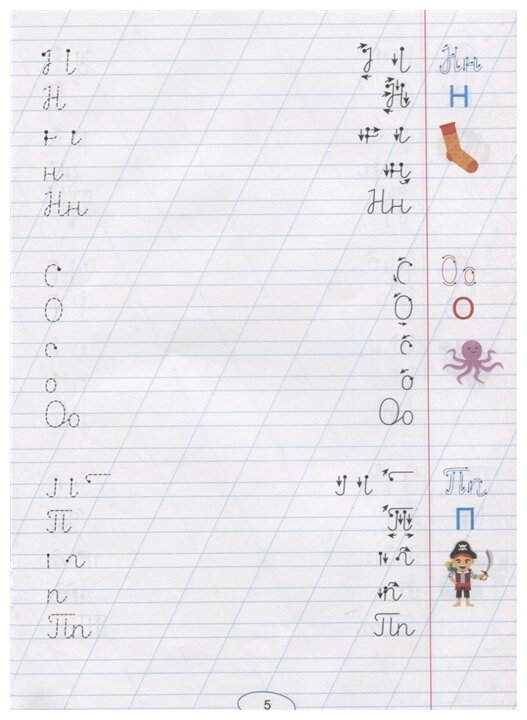 Нн
Н Н Н
н н
Нн Нн
Оо
О О О
о о
Оо Оо
Пп
П П П
п п
Пп Пп
5